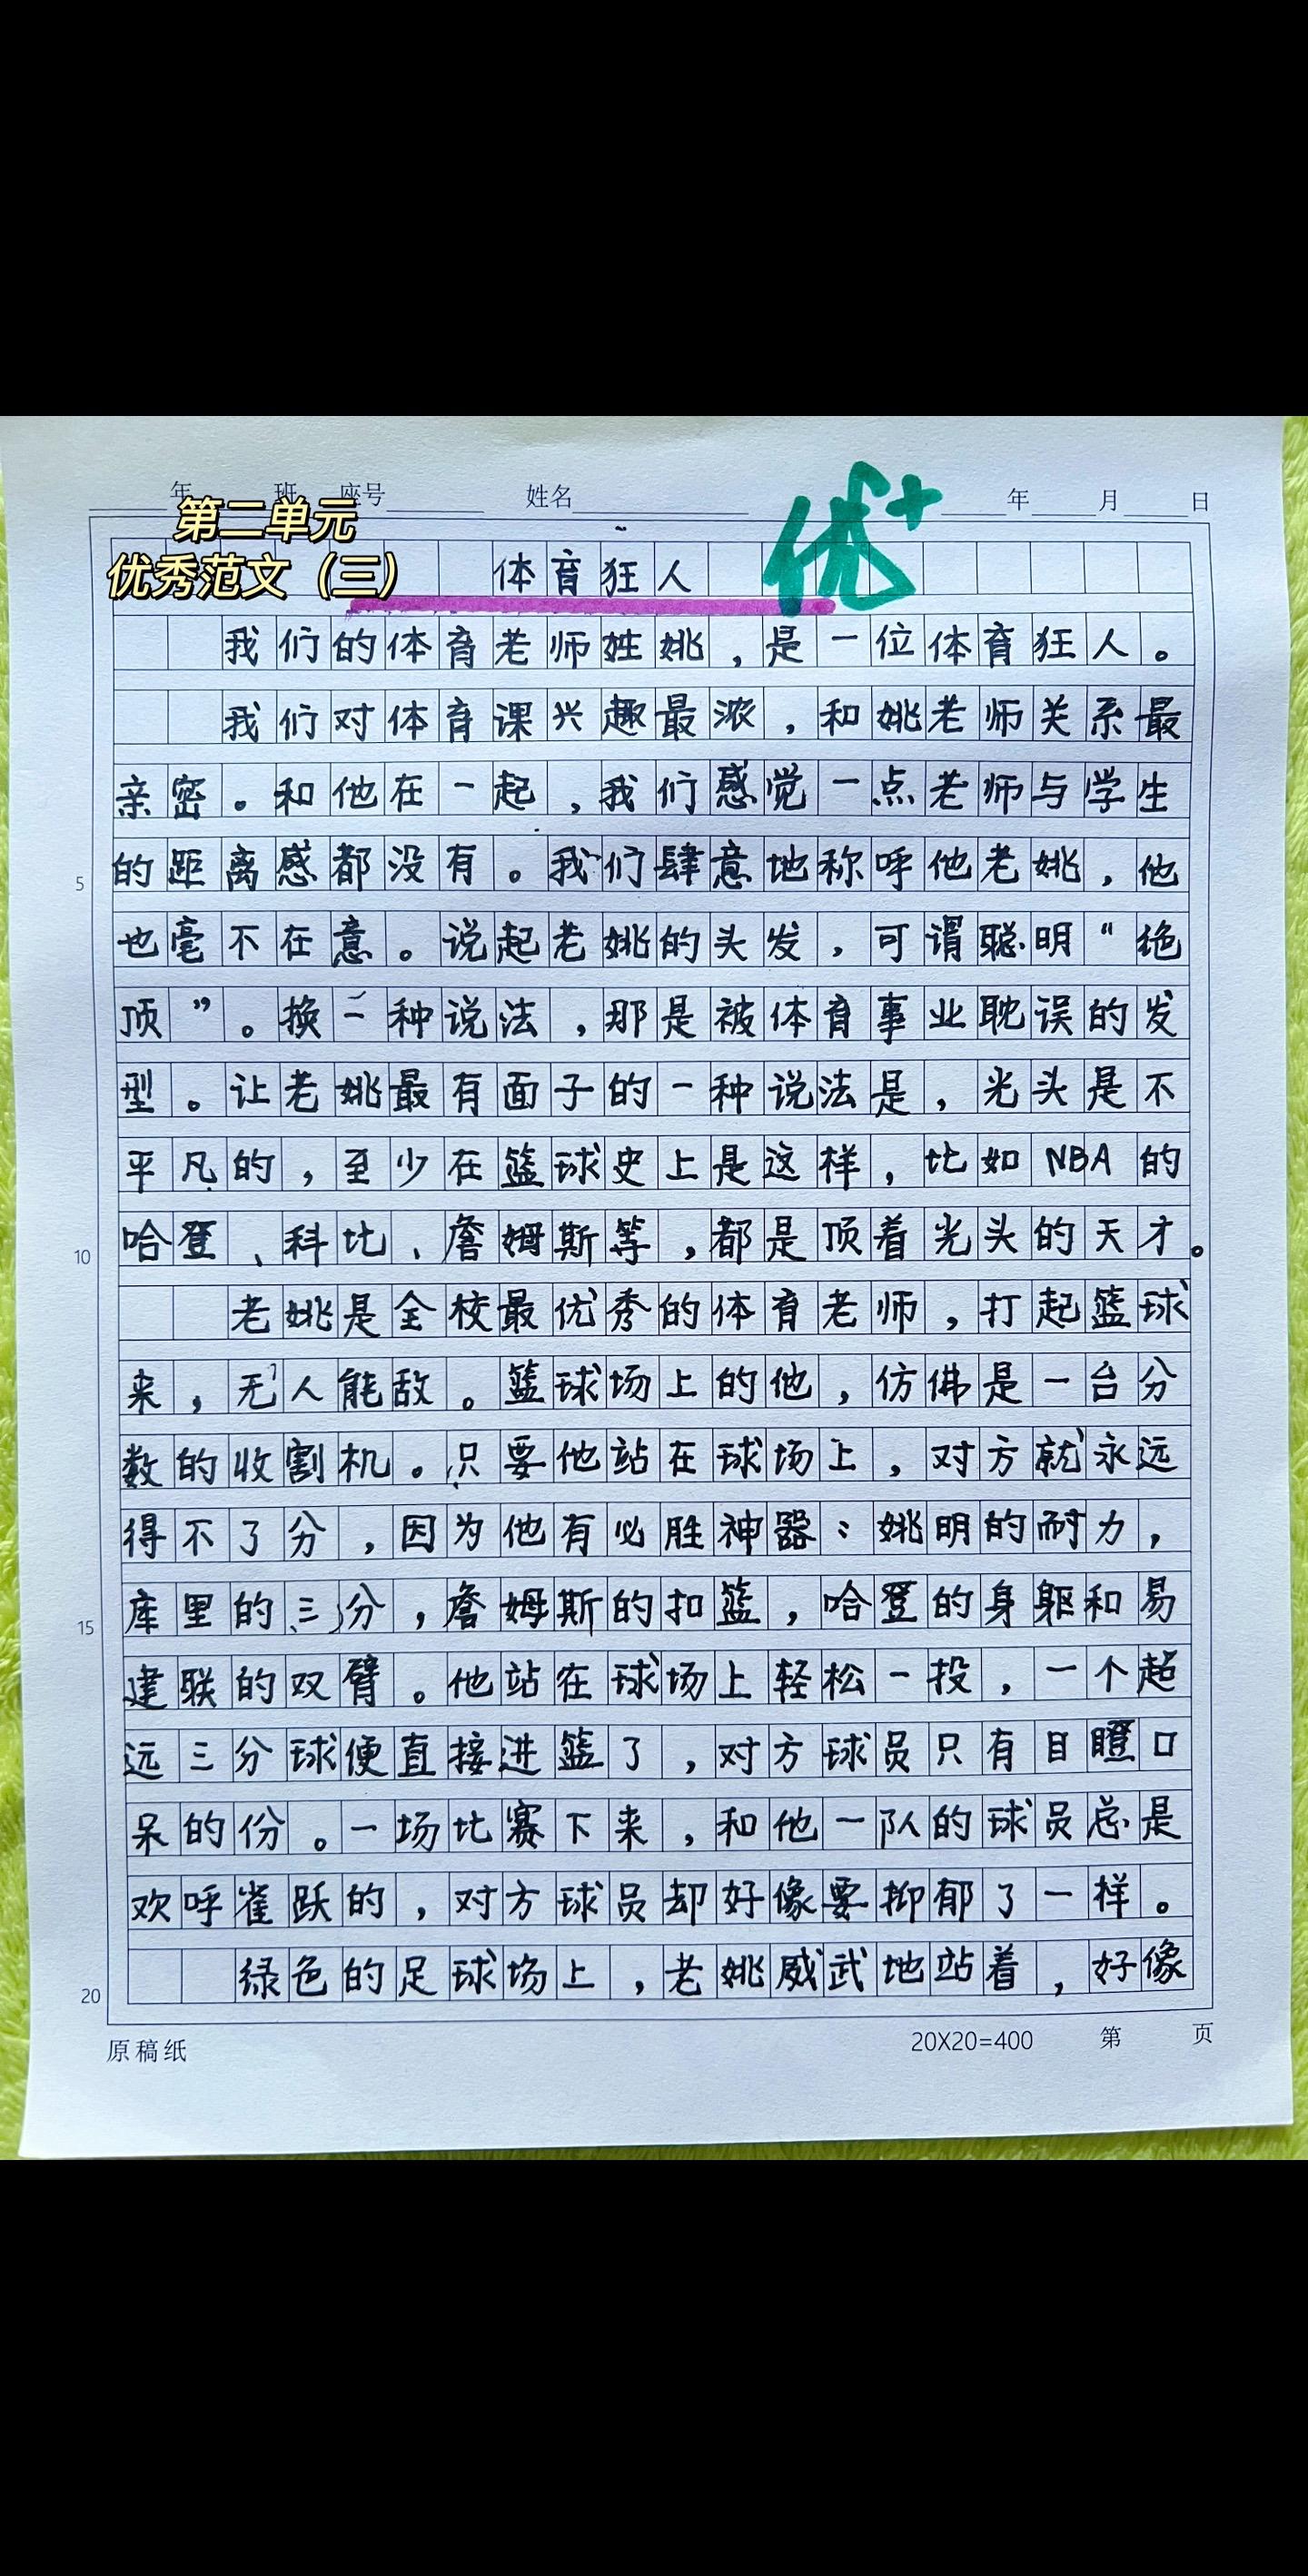 年 班 座号 姓名 年 月 日
第二单元
优秀范文（三）
优+
体育狂人
我们的体育老师姓姚，是一位体育狂人。
我们对体育课兴趣最浓，和姚老师关系最
亲密。和他在一起，我们感觉一点老师与学生
5 的距离感都没有。我们肆意地称呼他老姚，他
也毫不在意。说起老姚的头发，可谓聪明“绝
顶”。换一种说法，那是被体育事业耽误的发
型。让老姚最有面子的一种说法是，光头是不
平凡的，至少在篮球史上是这样，比如NBA的
10 哈登、科比、詹姆斯等，都是顶着光头的天才。
老姚是全校最优秀的体育老师，打起篮球
来，无人能敌。篮球场上的他，仿佛是一台分
数的收割机。只要他站在球场上，对方就永远
得不了分，因为他有必胜神器：姚明的耐力，
15 库里的三分，詹姆斯的扣篮，哈登的身躯和易
建联的双臂。他站在球场上轻松一投，一个超
远三分球便直接进篮了，对方球员只有目瞪口
呆的份。一场比赛下来，和他一队的球员总是
欢呼雀跃的，对方球员却好像要抑郁了一样。
20 绿色的足球场上，老姚威武地站着，好像
原稿纸 20X20=400 第 页